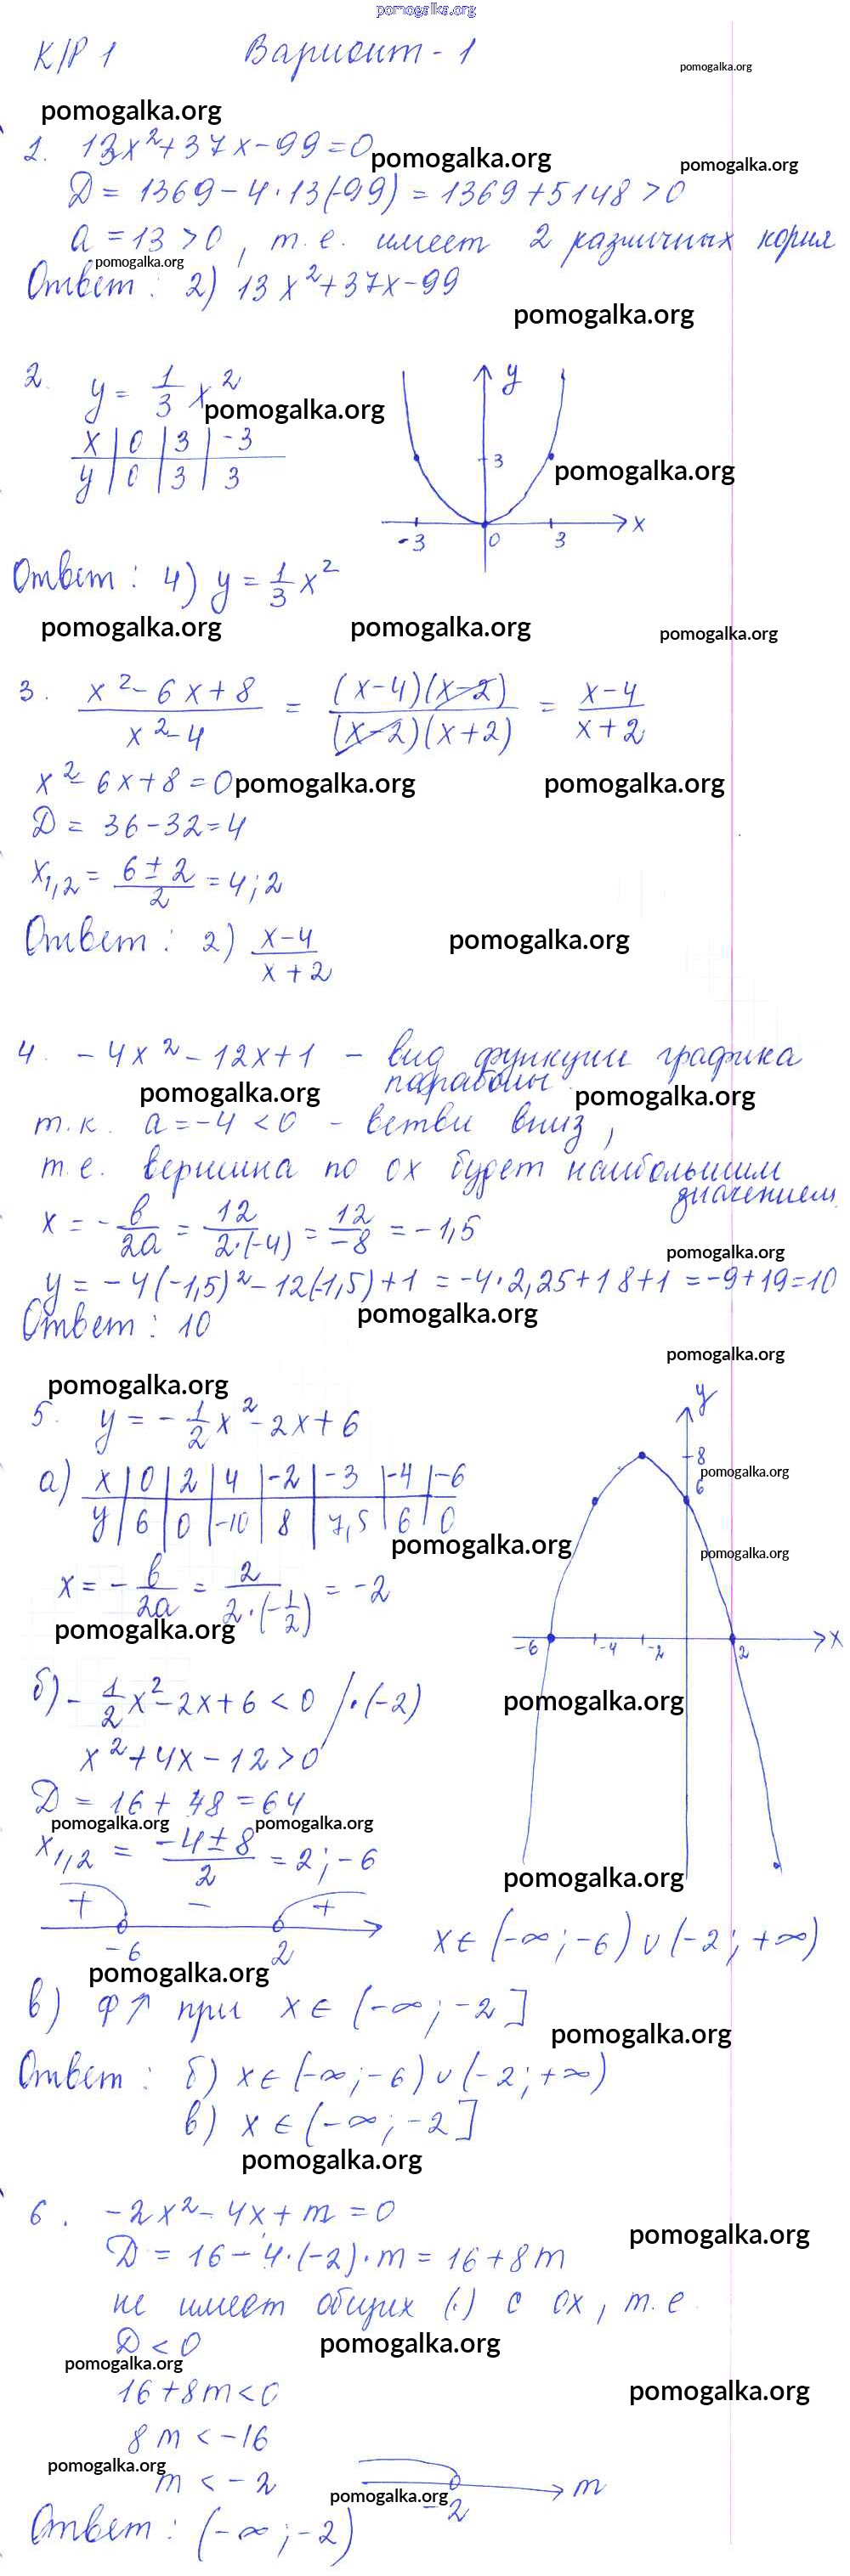 pomogalka.org
К/Р 1 Вариант - 1
pomogalka.org
pomogalka.org
1. 13x²+37x-99=0
pomogalka.org pomogalka.org
D = 1369-4·13(-99) = 1369+5148 > 0
a = 13 > 0, т.е. имеет 2 различных корня
pomogalka.org
Ответ: 2) 13x²+37x-99
pomogalka.org
2. y = 1/3 x²
pomogalka.org
x | 0 | 3 | -3
y | 0 | 3 | 3
y
3
pomogalka.org
-3 0 3 x
Ответ: 4) y = 1/3 x²
pomogalka.org pomogalka.org pomogalka.org
3. (x²-6x+8)/(x²-4) = ((x-4)(x-2))/((x-2)(x+2)) = (x-4)/(x+2)
x²-6x+8=0
pomogalka.org pomogalka.org
D = 36-32=4
x1,2 = (6±2)/2 = 4;2
Ответ: 2) (x-4)/(x+2)
pomogalka.org
4. -4x²-12x+1 - вид функции графика
параболы
pomogalka.org pomogalka.org
т.к. a=-4<0 - ветви вниз,
т.е. вершина по ох будет наибольшим
значением
x = -в/2a = 12/(2·(-4)) = 12/-8 = -1,5
pomogalka.org
y = -4(-1,5)²-12(-1,5)+1 = -4·2,25+18+1 = -9+19=10
Ответ: 10
pomogalka.org
pomogalka.org
pomogalka.org
5. y = -1/2 x²-2x+6
а) x | 0 | 2 | 4 | -2 | -3 | -4 | -6
y | 6 | 0 | -10 | 8 | 7,5 | 6 | 0
pomogalka.org
x = -в/2a = 2/(2·(-1/2)) = -2
pomogalka.org
y
8
pomogalka.org
6
pomogalka.org
-6 -4 -2 2 x
б) -1/2 x²-2x+6 < 0 /·(-2)
pomogalka.org
x²+4x-12>0
D = 16+48=64
pomogalka.org pomogalka.org
x1,2 = (-4±8)/2 = 2;-6
pomogalka.org
+ - +
-6 2
x∈(-∞;-6)∪(-2;+∞)
pomogalka.org
в) ф↑ при x∈(-∞;-2]
pomogalka.org
Ответ: б) x∈(-∞;-6)∪(-2;+∞)
в) x∈(-∞;-2]
pomogalka.org
6. -2x²-4x+m=0
pomogalka.org
D = 16-4·(-2)·m = 16+8m
не имеет общих (·) с ох, т.е.
D<0
pomogalka.org
pomogalka.org
16+8m<0
pomogalka.org
8m<-16
pomogalka.org
m<-2
-2 m
pomogalka.org
Ответ: (-∞;-2)